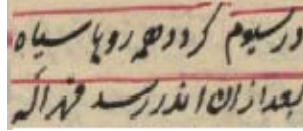 در سیوم گردد همه روها سیاه
بعد ازان اندر رسد قهر اله